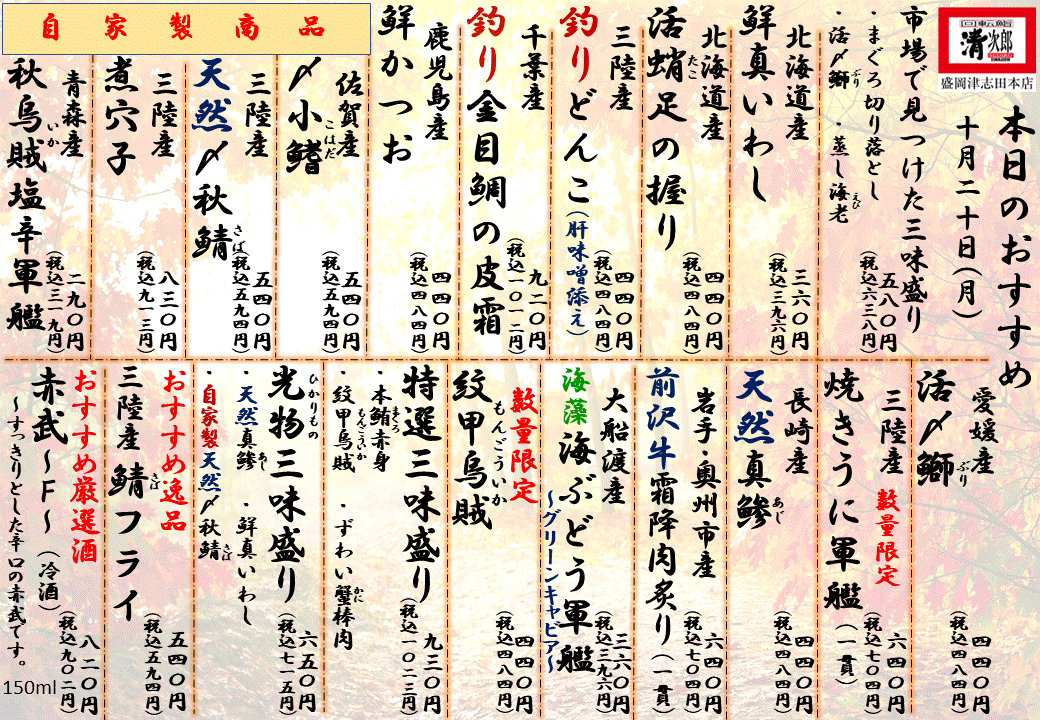 回転鮨
清次郎
盛岡津志田本店
本日のおすすめ
十月二十日(月)
市場で見つけた三味盛り
・まぐろ切り落とし
・活〆鰤 ・蒸し海老
ぶり
えび
五八〇円
(税込六三八円)
北海道産
鮮真いわし
三六〇円
(税込三九六円)
北海道産
活蛸足の握り
たこ
四四〇円
(税込四八四円)
三陸産
釣りどんこ(肝味噌添え)
四四〇円
(税込四八四円)
千葉産
釣り金目鯛の皮霜
九二〇円
(税込一〇一二円)
鹿児島産
鮮かつお
四四〇円
(税込四八四円)
自家製商品
佐賀産
〆小鰭
こはだ
五四〇円
(税込五九四円)
三陸産
天然〆秋鯖
さば
五四〇円
(税込五九四円)
三陸産
煮穴子
八三〇円
(税込九一三円)
青森産
秋烏賊塩辛軍艦
いか
二九〇円
(税込三一九円)
愛媛産
活〆鰤
ぶり
四四〇円
(税込四八四円)
三陸産
数量限定
焼きうに軍艦(一貫)
六四〇円
(税込七〇四円)
長崎産
天然真鯵
あじ
四四〇円
(税込四八四円)
岩手・奥州市産
前沢牛霜降肉炙り(一貫)
六四〇円
(税込七〇四円)
大船渡産
海藻海ぶどう軍艦
~グリーンキャビア~
三六〇円
(税込三九六円)
数量限定
紋甲烏賊
もんごういか
四四〇円
(税込四八四円)
特選三味盛り
・本鮪赤身
まぐろ
・紋甲烏賊 ・ずわい蟹棒肉
もんごういか
かに
九三〇円
(税込一〇二三円)
光物三味盛り
ひかりもの
・天然真鯵 ・鮮真いわし
あじ
・自家製天然〆秋鯖
さば
六五〇円
(税込七一五円)
おすすめ逸品
三陸産鯖フライ
さば
五四〇円
(税込五九四円)
おすすめ厳選酒
赤武~F~(冷酒)
~すっきりとした辛口の赤武です。
八二〇円
(税込九〇二円)
150ml